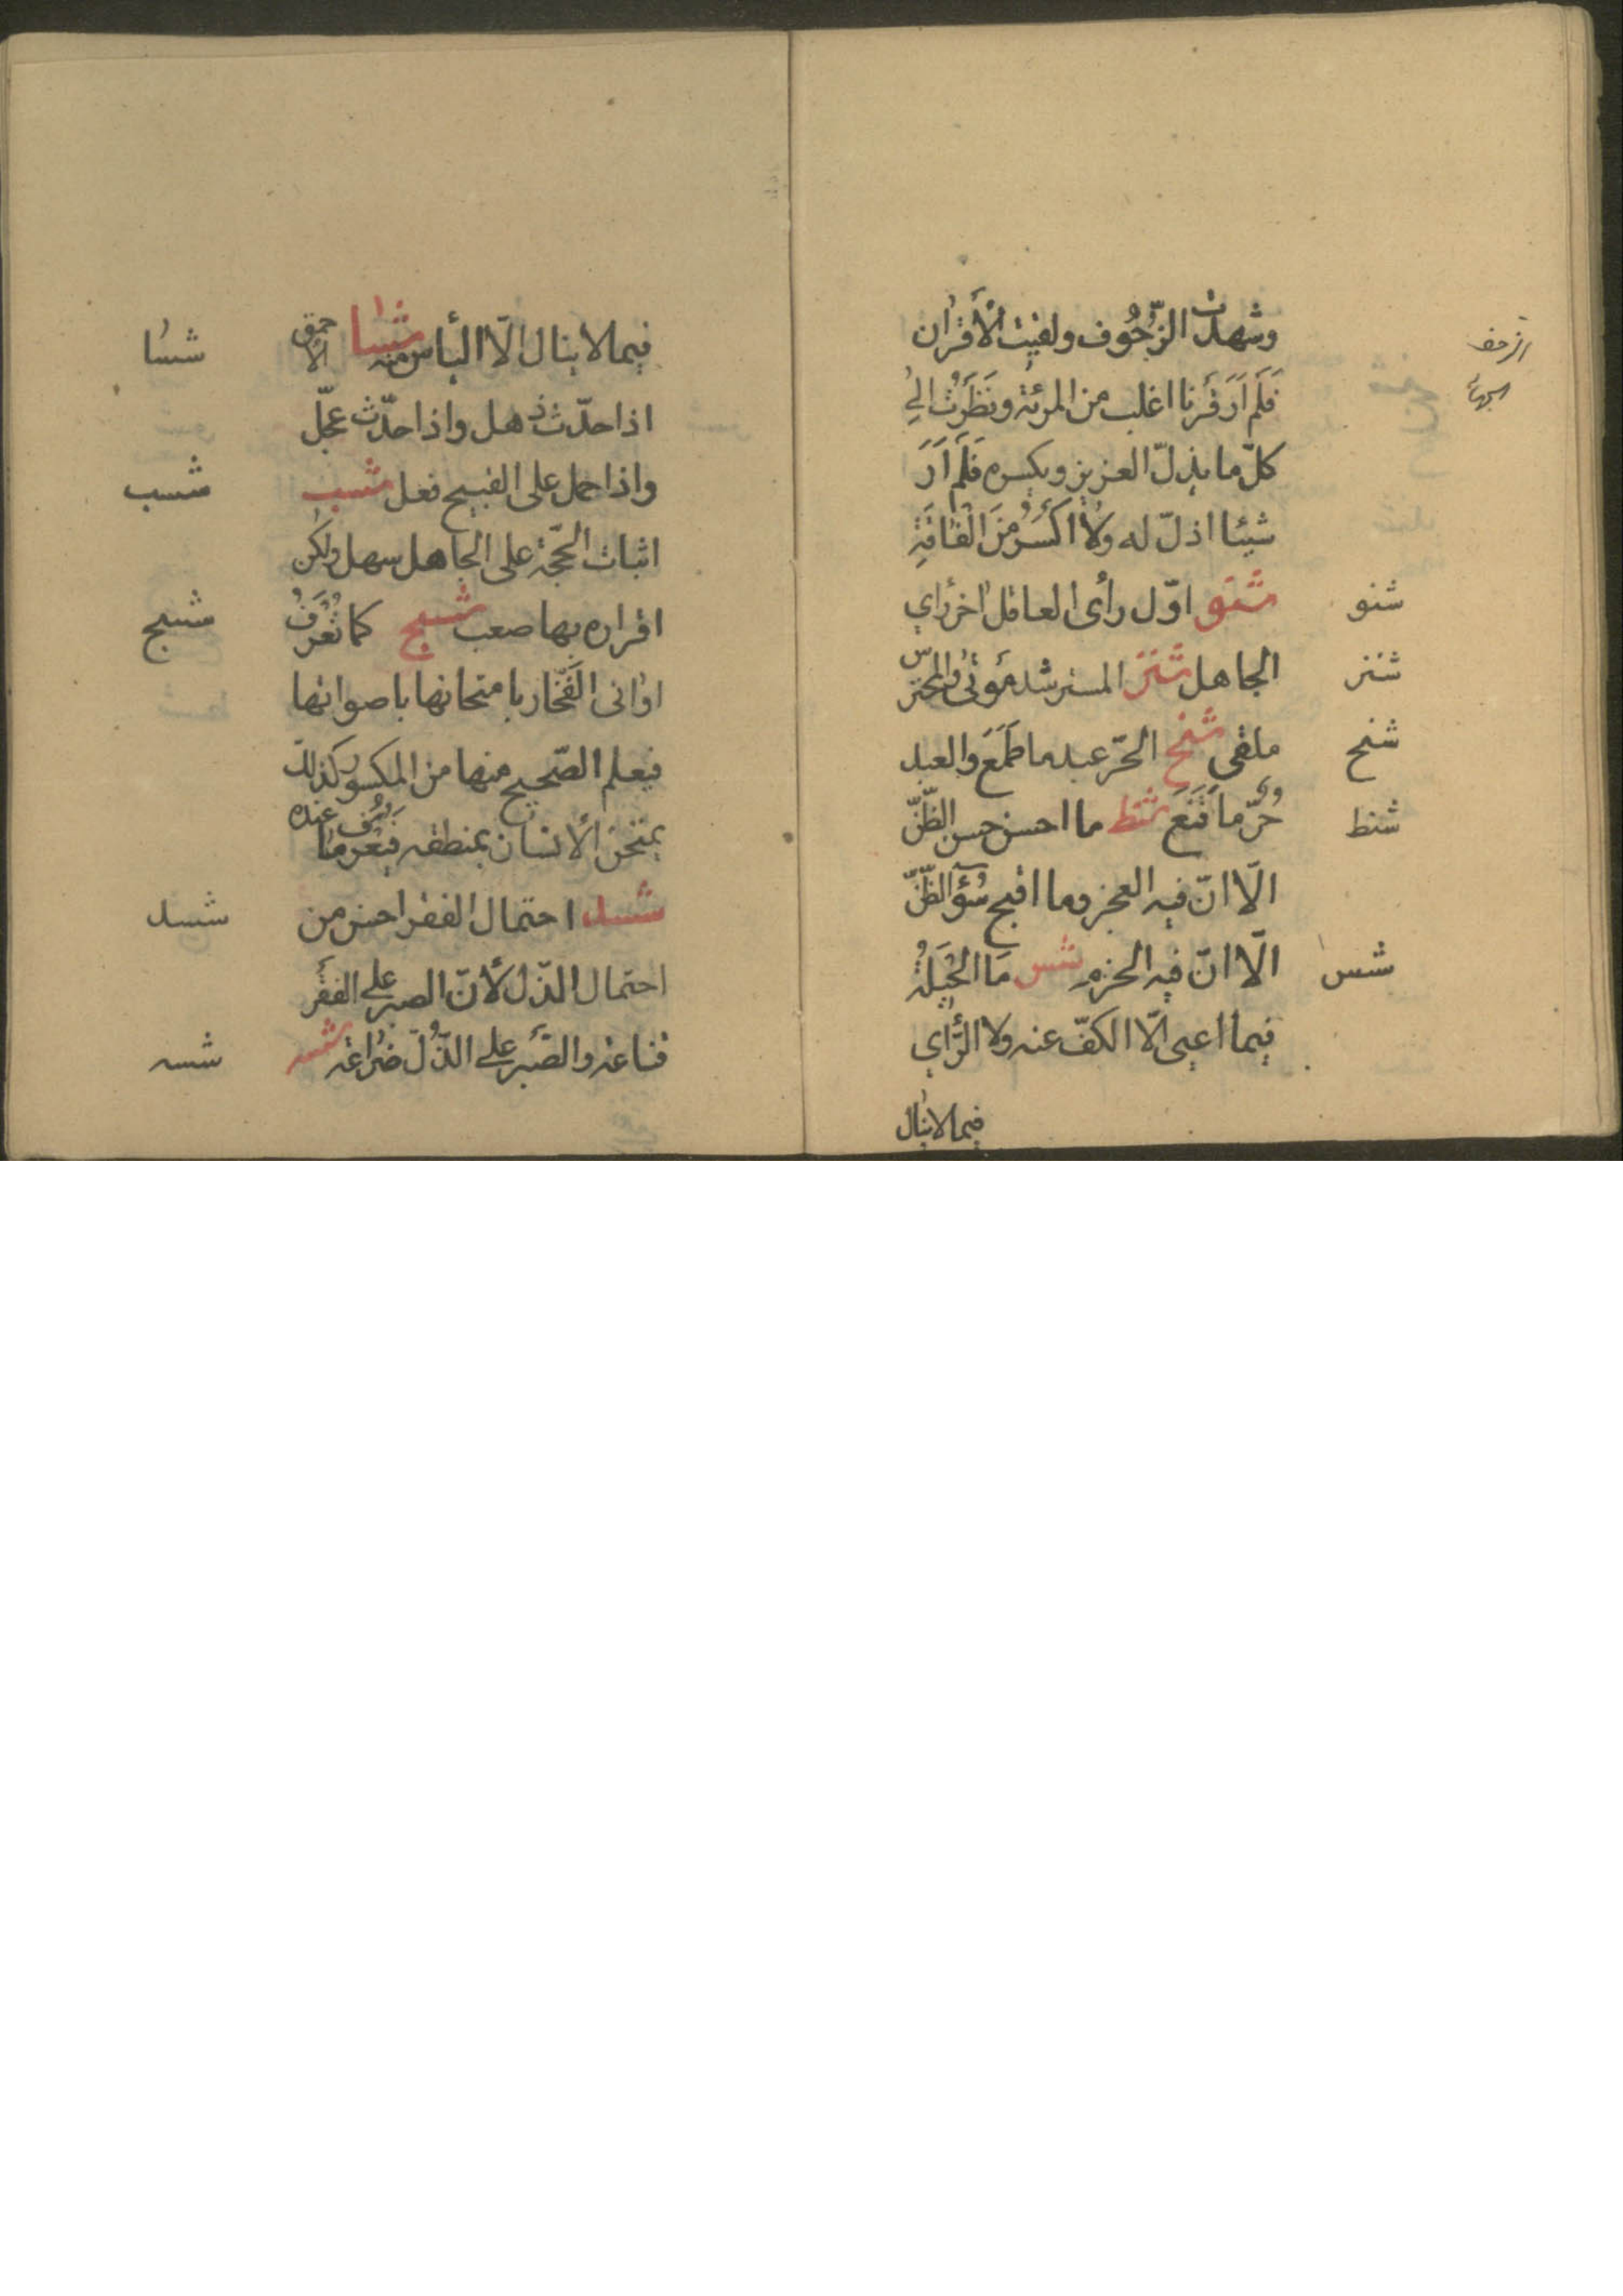 وشهدت الزّحُوف ولقيت الأقران
الزحف
الجهاد
فَلَم اَرَ قَرنا اغلب من المرئة ونَظَرتُ الى
كلّ ما يذلّ العزيز ويكسره فَلَم اَرَ
شيئا اذلّ له ولا اكسَرُ مِنَ الْفَاقَةِ
شنو اوّل رأى العاقل اخر رأي
شنو
الجاهل شنز المسترشد مُوَقّىً والمحترس
شنز
ملقى شنح الحرّ عبد ما طَمَعَ والعبد
شنح
حُرّ ما قَنَعَ شنط ما احسن حسن الظّنّ
شنط
الّا انّ فيه العجز وما اقبح سُوٓء الظّنّ
الّا انّ فيه الحزم شس مَا الحِيلَةُ
شس
فيما اعيى الّا الكفّ عنه ولا الرَّأي
فيما لا ينال
فيما لا ينال الّا اليأس منه شسا الاحمق
شسا
اذا حدّث ذهل واذا حدّث عجّل
واذا حمل على القبيح فعل شسب
شسب
اثبات الحجّة على الجاهل سهل ولكن
اقراره بها صعب شسج كما تُعْرَفُ
شسج
اوانى الفَخّار بامتحانها باصواتها
فيعلم الصّحيح منها من المكسور كذلك
يمتحن الانسان بمنطقه فيُعْرف ما عنده
شسد احتمال الفقر احسن من
شسد
احتمال الذّل لأنّ الصبر على الفقر
قناعة والصَّبر على الذُّلّ ضراعة شسه
شسه